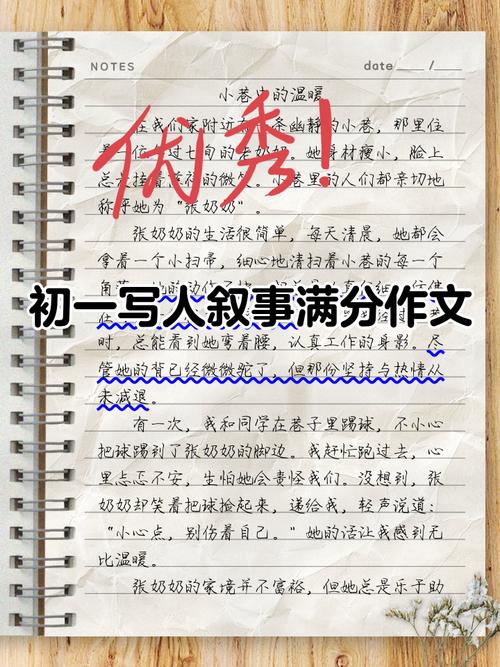 NOTES
date ____ / __
小巷中的温暖
优秀!
在我们家附近 条幽静的小巷，那里住
位 过七旬的老奶奶。她身材瘦小，脸上
总 挂着 的微笑。小巷里的人们都亲切地
称呼她为“张奶奶”。
张奶奶的生活很简单，每天清晨，她都会
拿着一个小扫帚，细心地清扫着小巷的每一个
角
初一写人叙事满分作文
时，总能看到她弯着腰，认真工作的身影。尽
管她的背已经微微驼了，但那份坚持与热情从
未减退。
有一次，我和同学在巷子里踢球，不小心
把球踢到了张奶奶的脚边。我赶忙跑过去，心
里忐忑不安，生怕她会责怪我们。没想到，张
奶奶却笑着把球捡起来，递给我，轻声说道：
“小心点，别伤着自己。”她的话让我感到无
比温暖。
张奶奶的家境并不富裕，但她总是乐于助